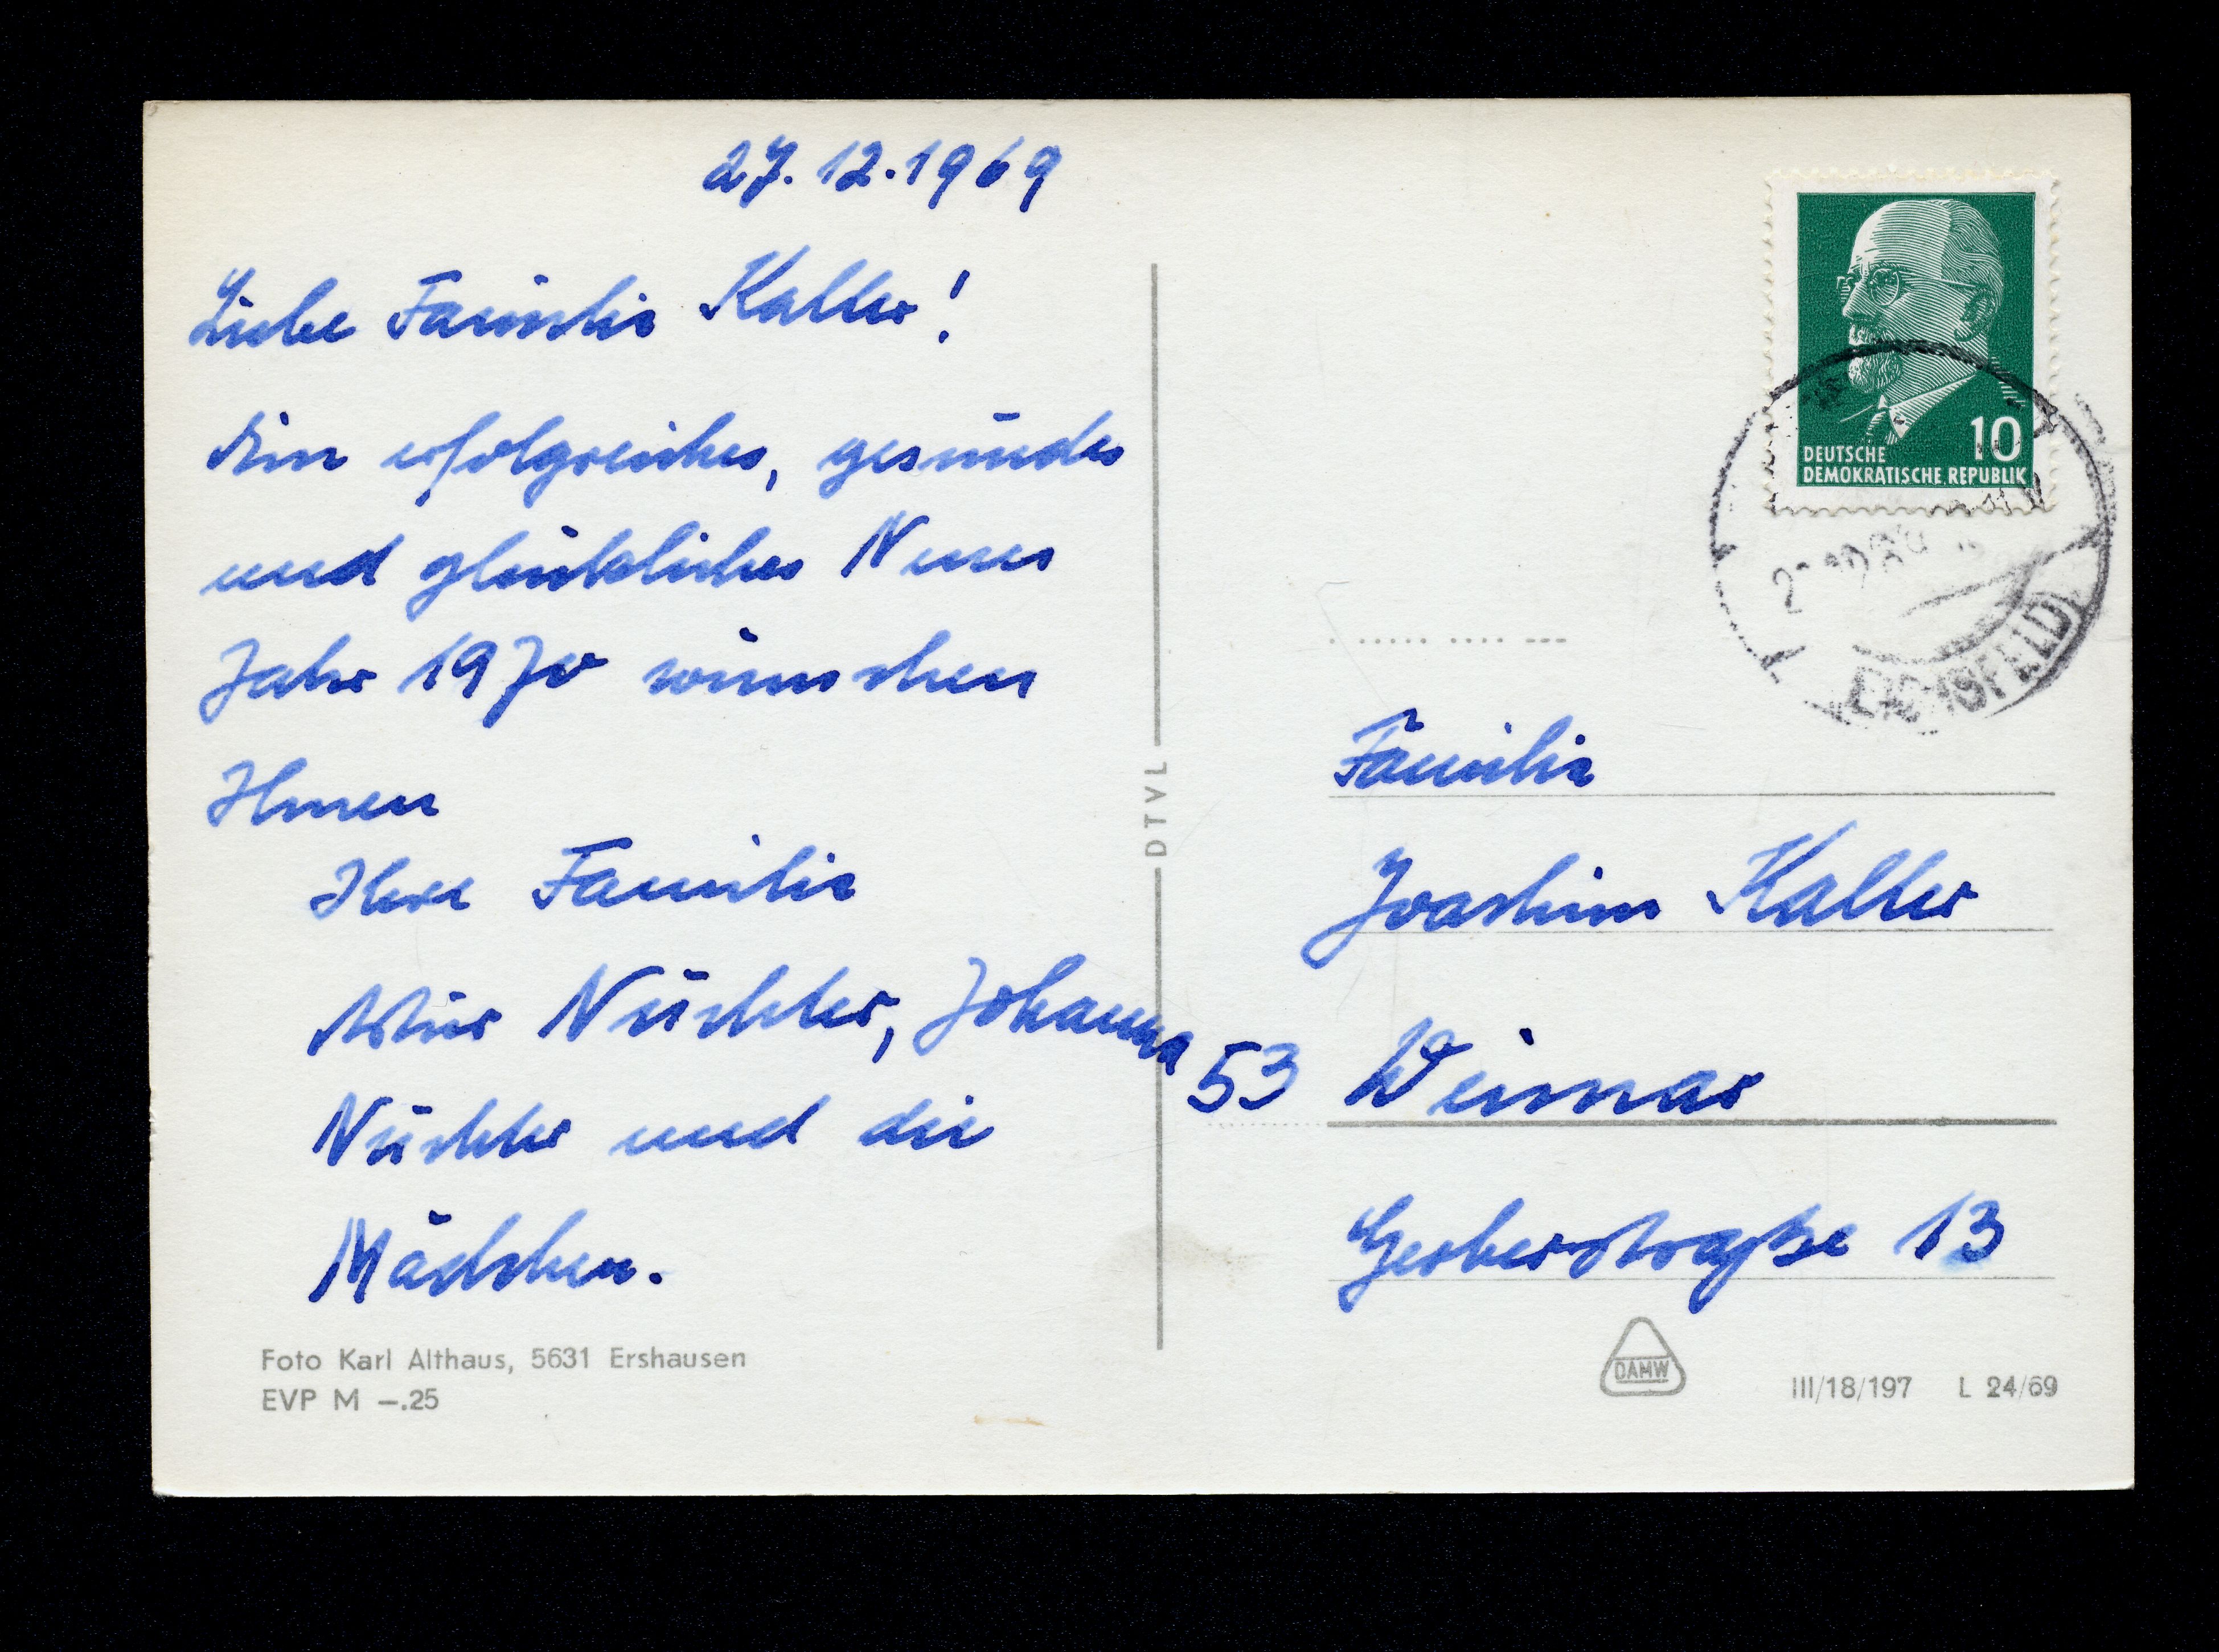 27.12.1969
Liebe Familie Kaller!
Ein erfolgreiches, gesundes
und glückliches Neues
Jahr 1970 wünschen
Ihnen
Ihre Familie
Artur Nüchter, Johanna
Nüchter und die
Mädchen.
Foto Karl Althaus, 5631 Ershausen
EVP M –.25
DTVL
10
DEUTSCHE
DEMOKRATISCHE REPUBLIK
Familie
Joachim Kaller
53 Weimar
Gerberstraße 13
DAMW
III/18/197 L 24/69